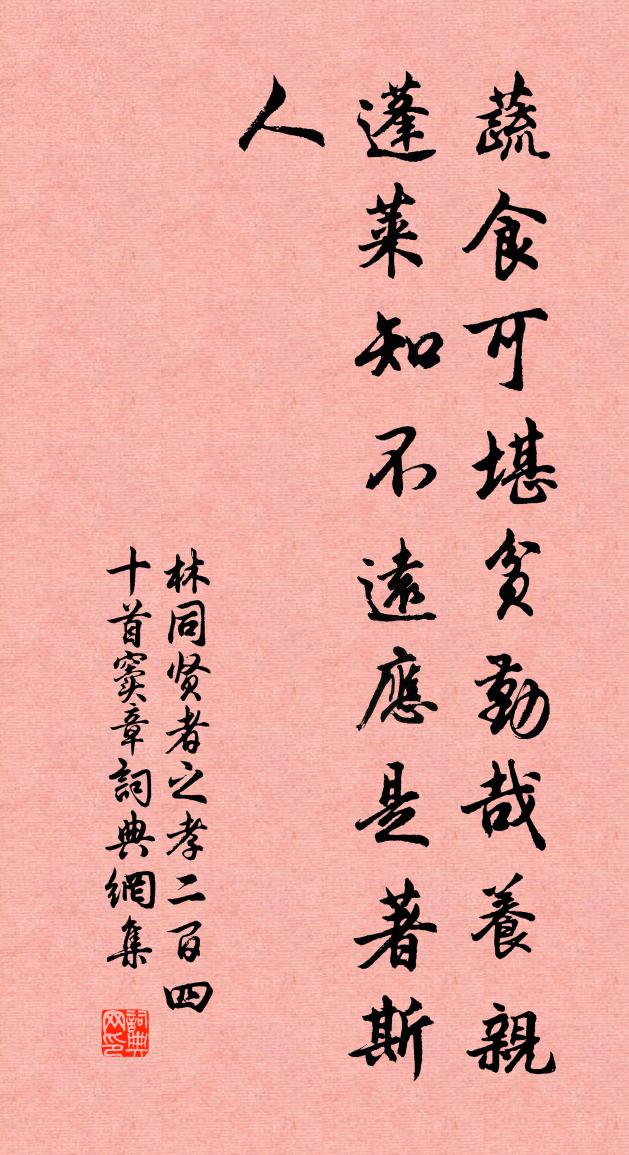 蔬食可堪貧勤哉養親
蓬萊知不遠應是著斯
人
林同贤者之孝二百四
十首窦章詞典網集
詞典网印